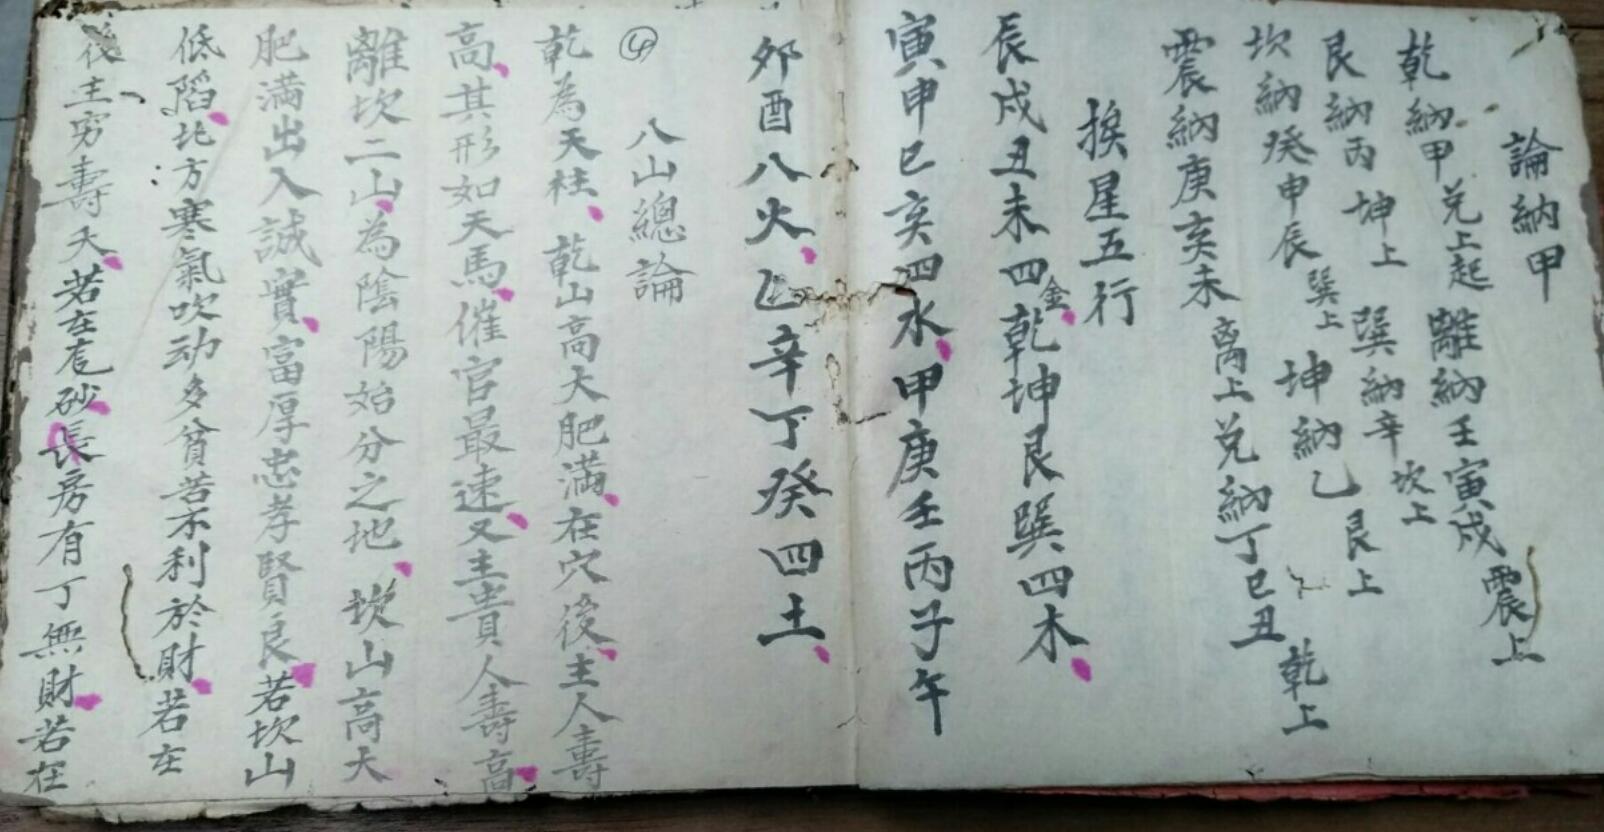 論納甲
乾納甲兑上起離納壬寅戌震上
艮納丙坤上巽納辛坎上
坎納癸申辰巽上坤納乙艮上
震納庚亥未离上兑納丁巳丑乾上
挨星五行
辰戌丑未四金乾坤艮巽四木
寅申巳亥四水甲庚壬丙子午
夘酉八火乙辛丁癸四土
④
八山總論
乾為天柱乾山高大肥満在穴後主人壽
高其形如天馬催官最速又主貴人壽高
離坎二山為陰陽始分之地坎山高大
肥満出入誠實富厚忠孝賢良若坎山
低陷北方寒氣吹动多貧苦不利於財若在
後主穷壽夭若在危砂長房有丁無財若在